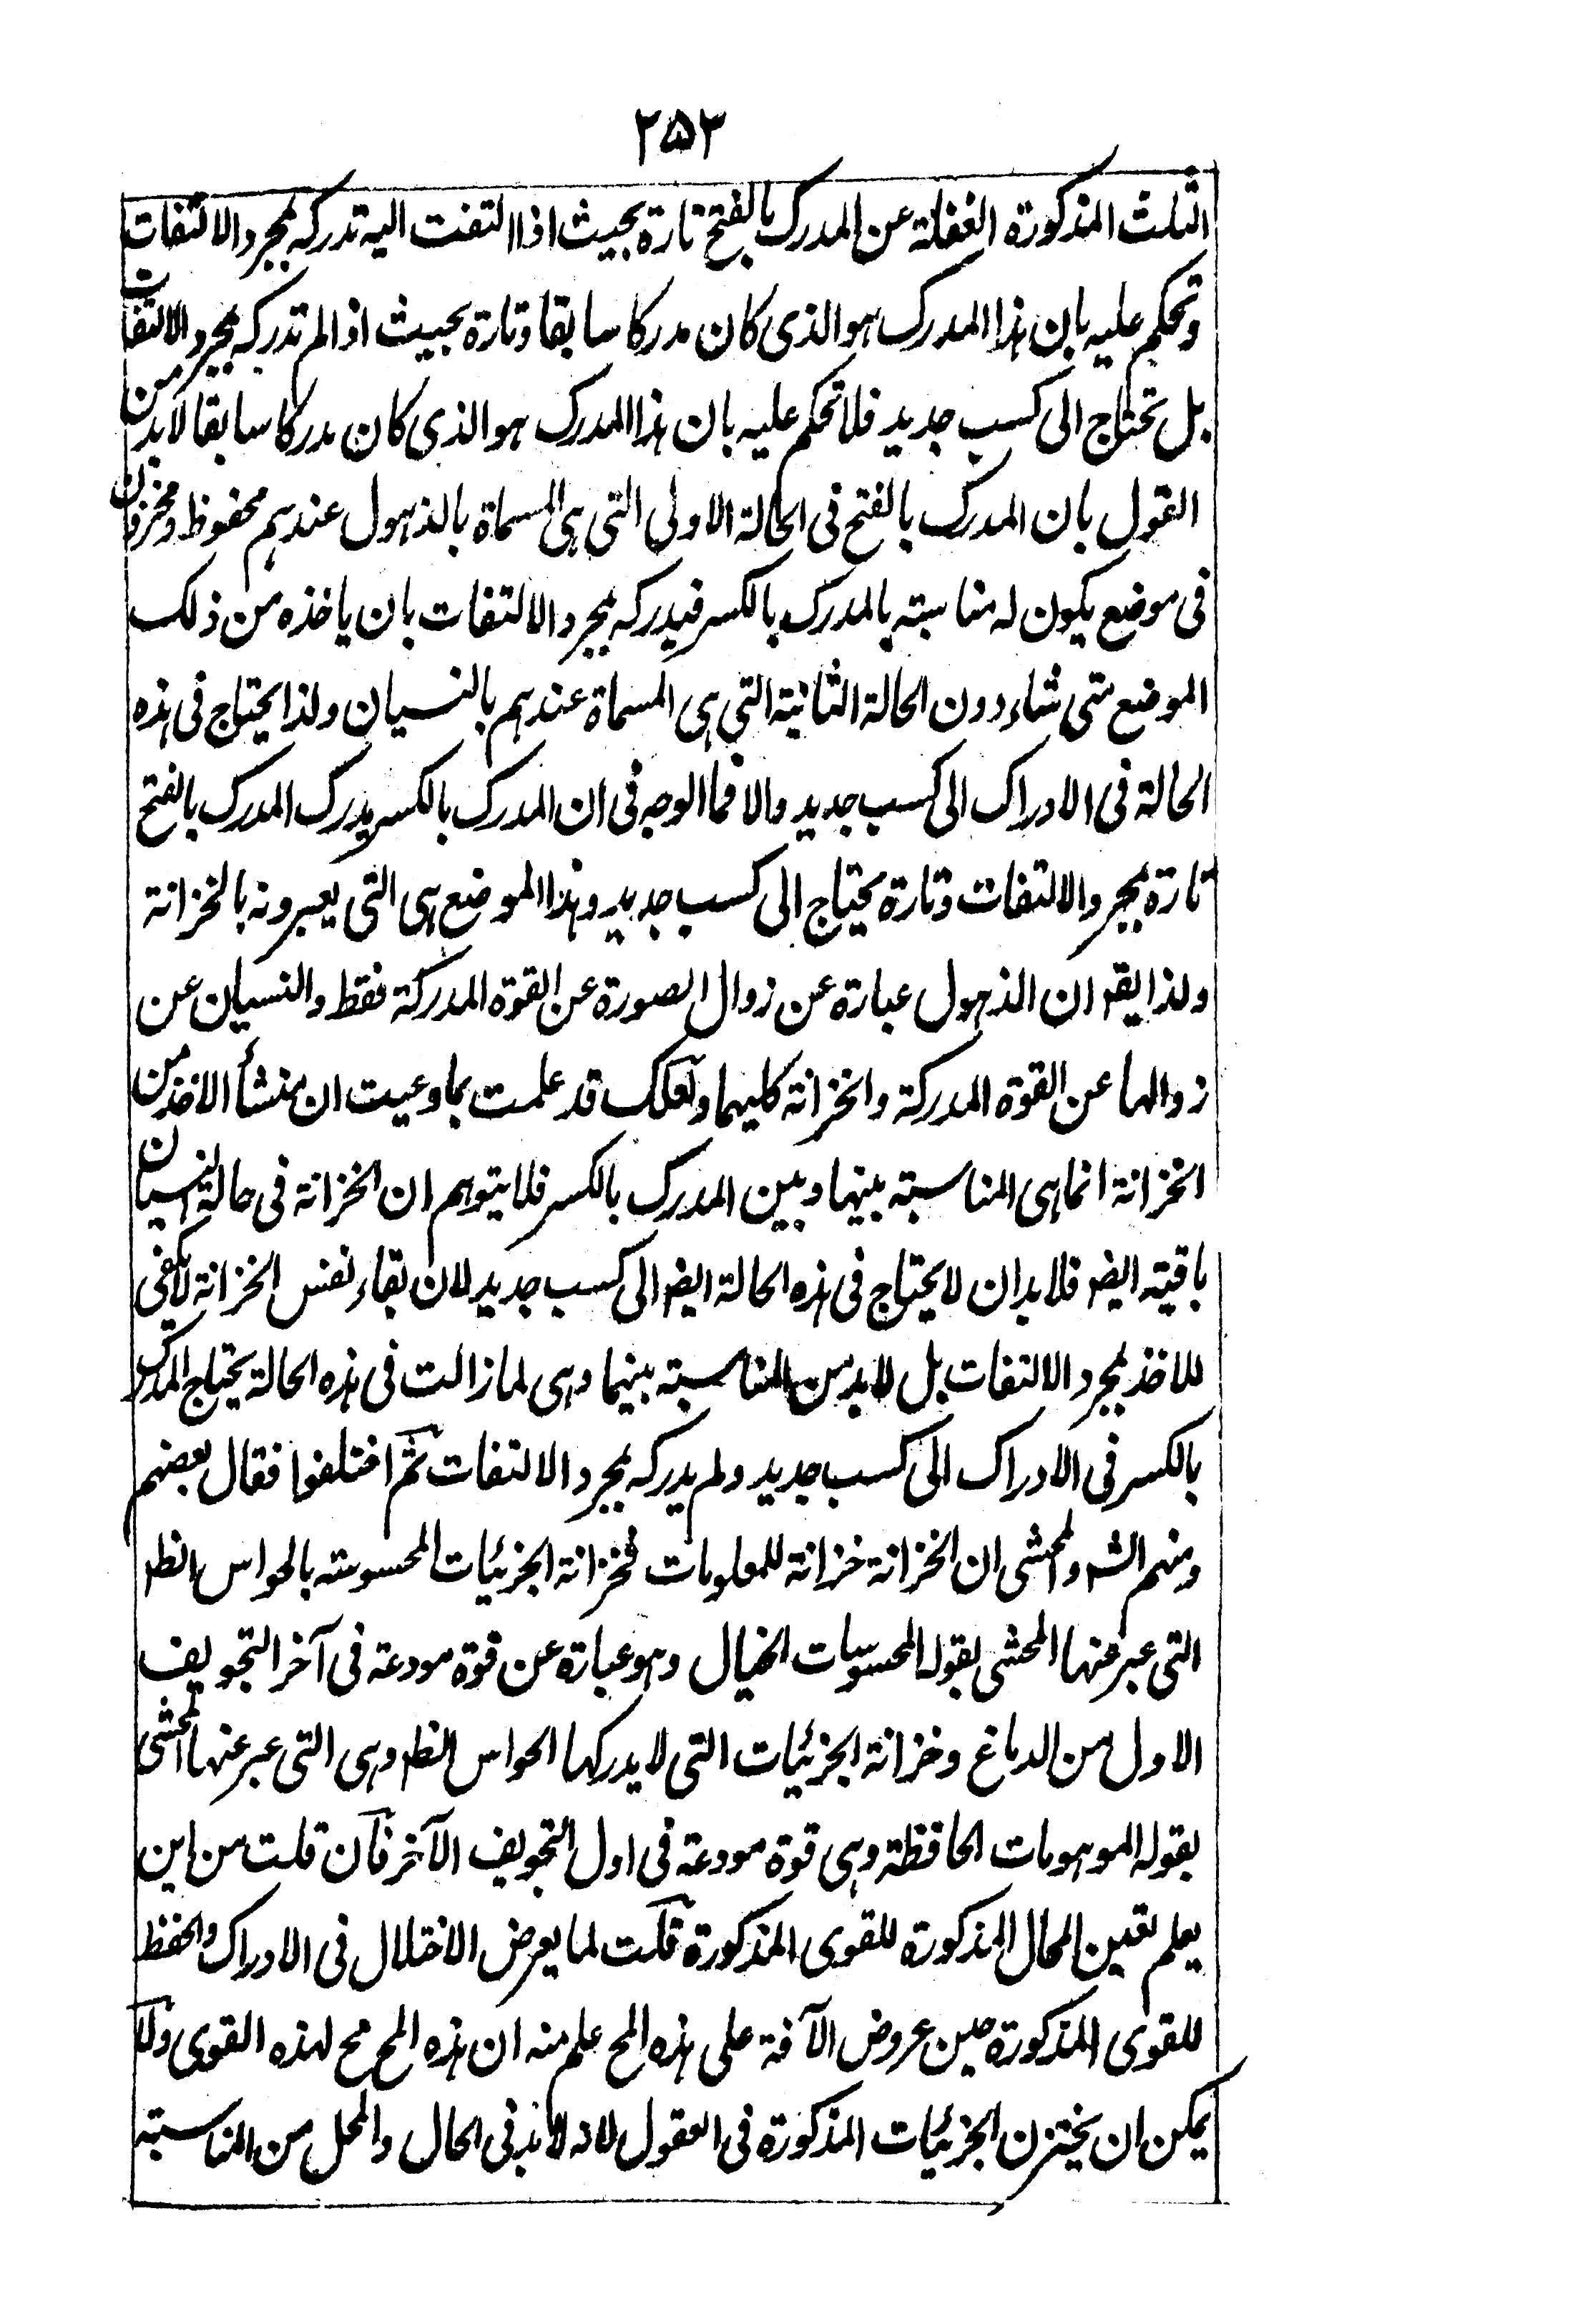 ۲۵۳
الثلث المذكورة الغفلة عن المدرك بالفتح تارة بحيث اذا التفت اليه تدركه بمجرد الالتفات
وتحكم عليه بان هذا المدرك هو الذي كان مدركا سابقا وتارة بحيث اذا لم تدركه بمجرد الالتفات
بل تحتاج الى كسب جديد فلا تحكم عليه بان هذا المدرك هو الذي كان مدركا سابقا لابد من
القول بان المدرك بالفتح فى الحالة الاولى التي هى المسماة بالذهول عندهم محفوظ ومخزون
فى موضع يكون له مناسبة بالمدرك بالكسر فيدركه بمجرد الالتفات بان ياخذه من ذلك
الموضع متى شاء دون الحالة الثانية التي هى المسماة عندهم بالنسيان ولذا يحتاج فى هذه
الحالة فى الادراك الى كسب جديد والا فما الوجه فى ان المدرك بالكسر يدرك المدرك بالفتح
تارة بمجرد الالتفات وتارة يحتاج الى كسب جديد وهذا الموضع هى التي يعبرونه بالخزانة
ولذا يقم ان الذهول عبارة عن زوال الصورة عن القوة المدركة فقط والنسيان عن
زوالها عن القوة المدركة والخزانة كليهما ولعلك قد علمت بما وعيت ان منشأ الاخذ من
الخزانة انما هى المناسبة بينها وبين المدرك بالكسر فلا يتوهم ان الخزانة فى حالة النسيان
باقية ايضا فلابد ان لا يحتاج فى هذه الحالة ايضا الى كسب جديد لان بقاء نفس الخزانة لا يكفى
للاخذ بمجرد الالتفات بل لابد من المناسبة بينهما وهى لما زالت فى هذه الحالة يحتاج المدرك
بالكسر فى الادراك الى كسب جديد ولم يدركه بمجرد الالتفات ثم اختلفوا فقال بعضهم
ومنهم الشـ والمحشى ان الخزانة خزانة للمعلومات فخزانة الجزئيات المحسوسة بالحواس الظـ
التي عبر عنها المحشى بقوله المحسوسات الخيال وهو عبارة عن قوة مودعة فى آخر التجويف
الاول من الدماغ وخزانة الجزئيات التي لا يدركها الحواس الظـ وهى التي عبر عنها المحشى
بقوله الموهومات الحافظة وهى قوة مودعة فى اول التجويف الآخر فان قلت من اين
يعلم تعين المحال المذكورة للقوى المذكورة قلت لما يعرض الاختلال فى الادراك والحفظ
للقوى المذكورة حين عروض الآفة على هذه المح علم منه ان هذه المح مح لهذه القوى ولا
يمكن ان يختزن الجزئيات المذكورة فى العقول لانه لابد فى الحال والمحل من المناسبة